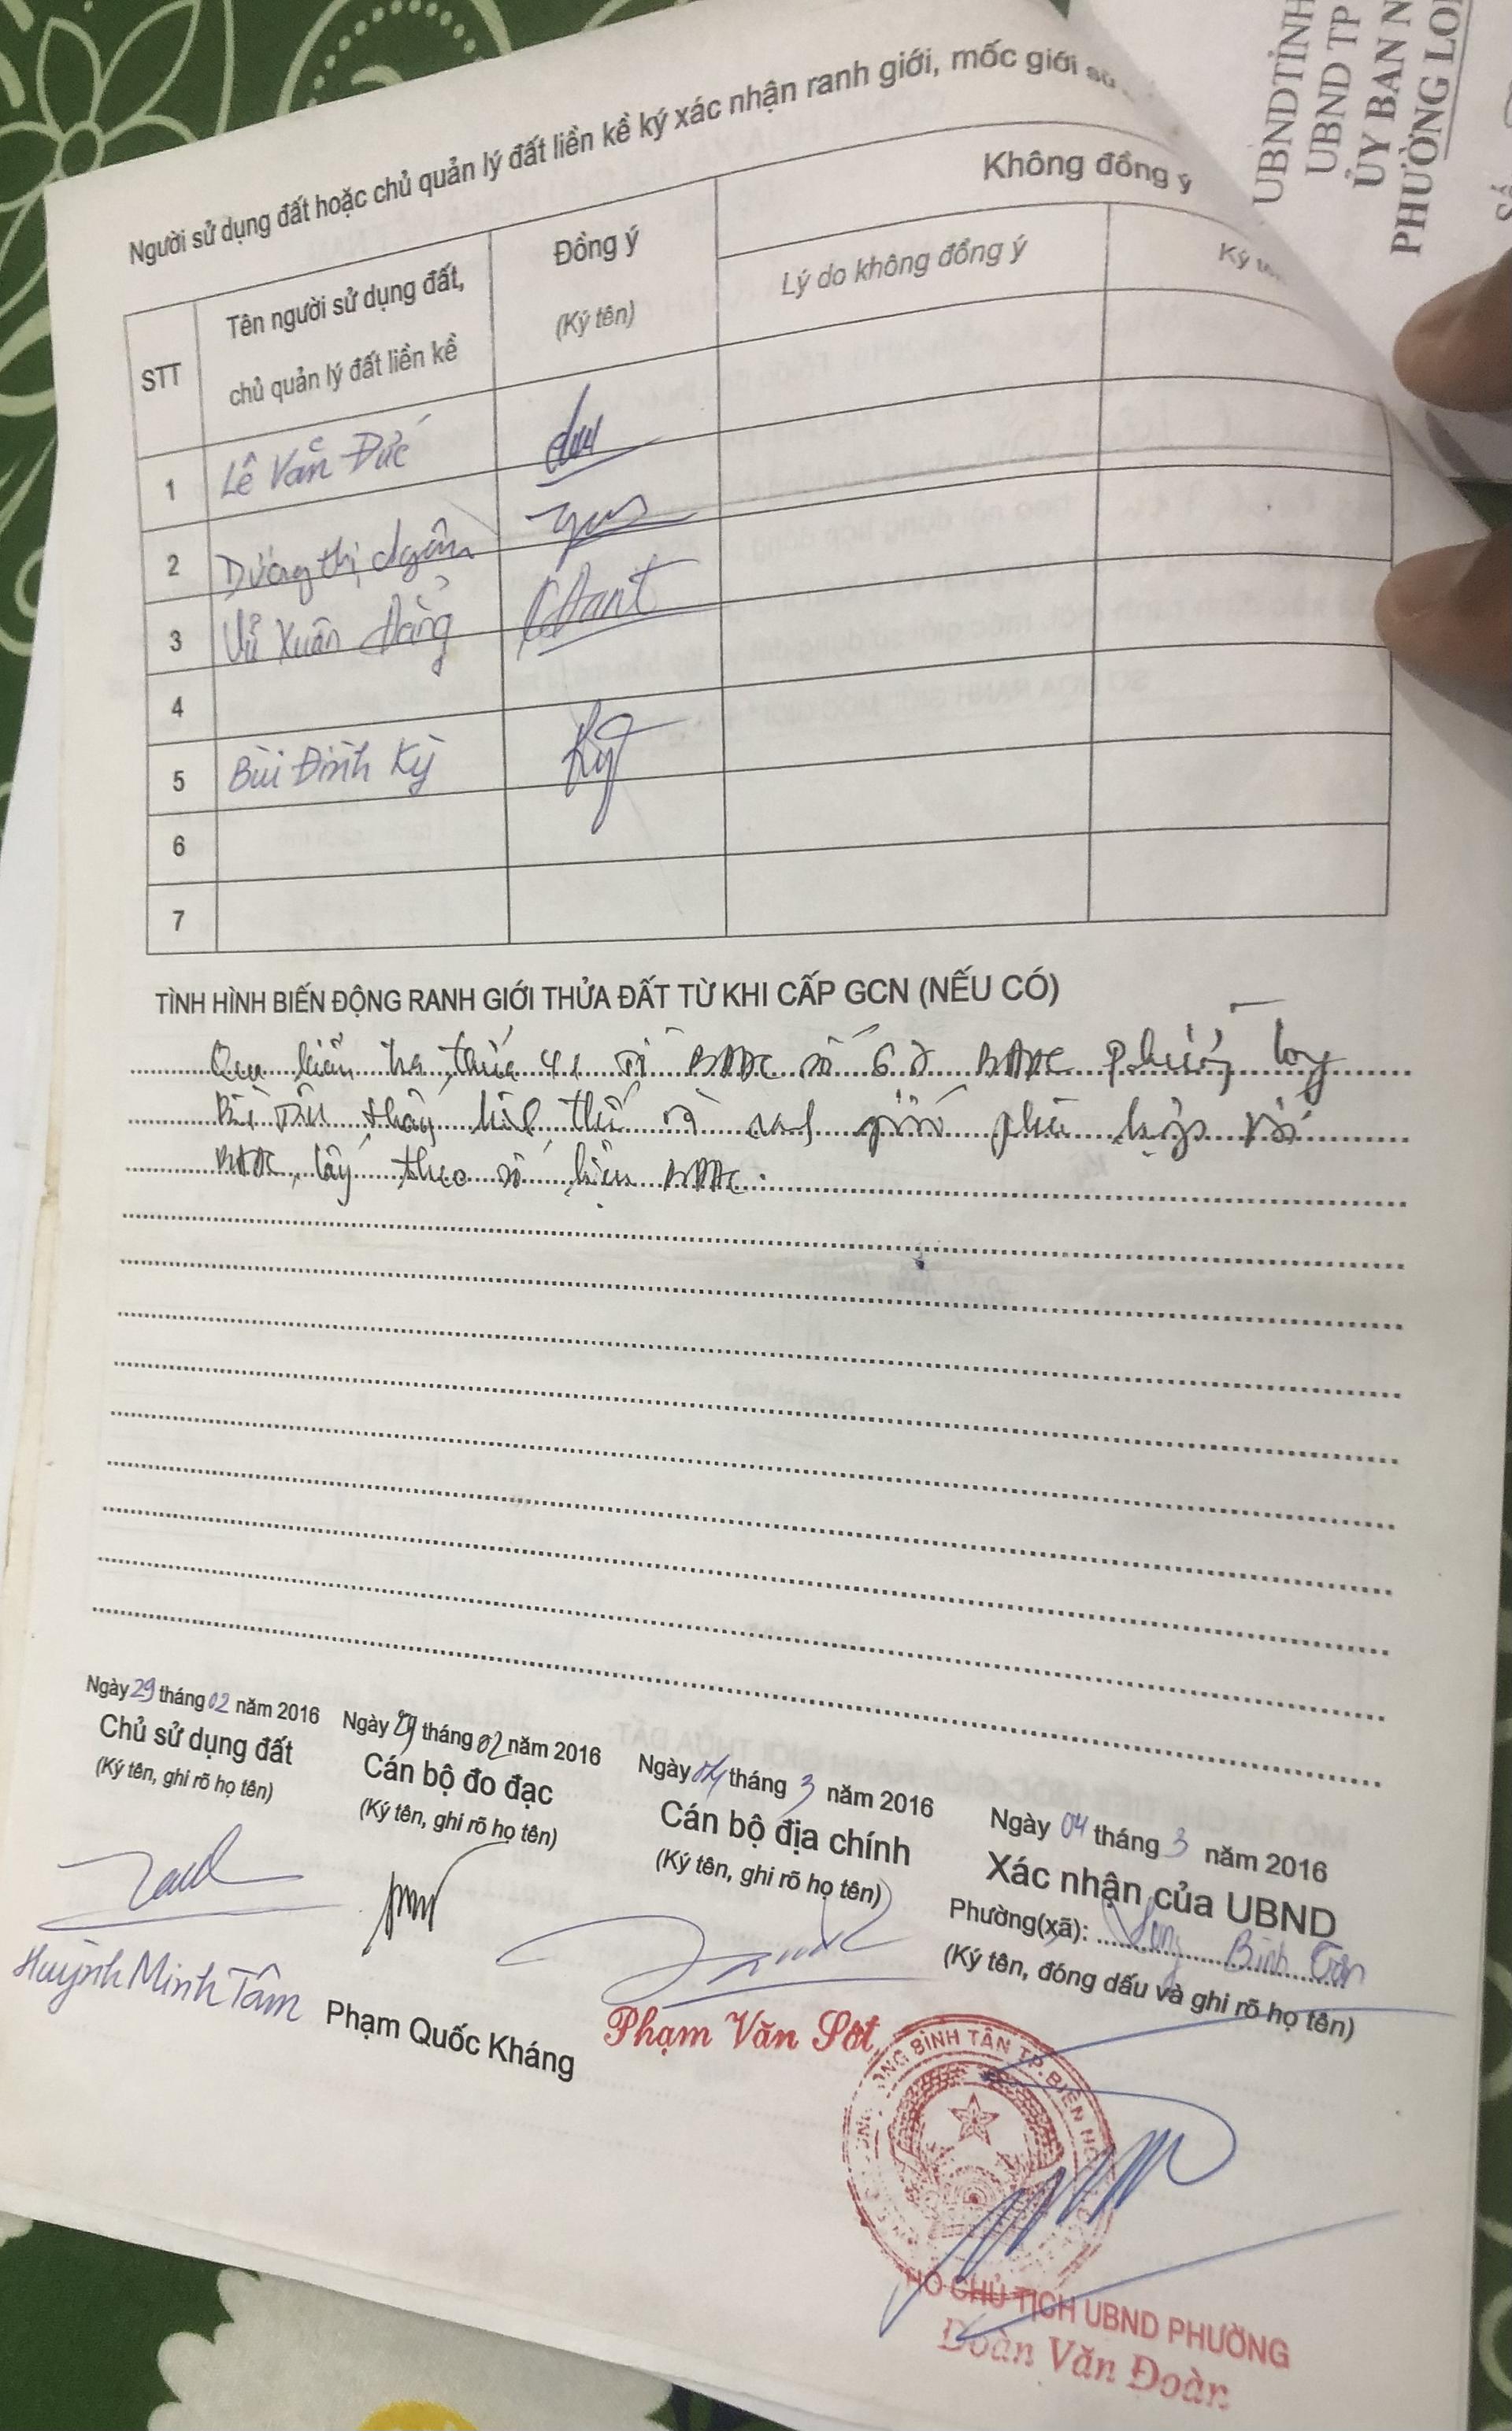 UBND TỈNH
UBND TP
ỦY BAN N
PHƯỜNG LO
Số
Người sử dụng đất hoặc chủ quản lý đất liền kề ký xác nhận ranh giới, mốc giới sử
STT
Tên người sử dụng đất,
chủ quản lý đất liền kề
Đồng ý
(Ký tên)
Không đồng ý
Lý do không đồng ý
Ký
1 Lê Văn Đức
2 Dương thị Ngân
3 Vũ Xuân
4
5 Bùi Đình Kỳ Kỳ
6
7
TÌNH HÌNH BIẾN ĐỘNG RANH GIỚI THỬA ĐẤT TỪ KHI CẤP GCN (NẾU CÓ)
Qua kiểm tra thửa 41 tờ BĐĐC số 62 BĐĐC phường Long
Bình Tân thấy hình thể và ranh giới phù hợp với
BĐĐC, lấy theo số liệu BĐĐC.
Ngày 29 tháng 02 năm 2016
Chủ sử dụng đất
(Ký tên, ghi rõ họ tên)
Huỳnh Minh Tâm
Ngày 29 tháng 02 năm 2016
Cán bộ đo đạc
(Ký tên, ghi rõ họ tên)
Phạm Quốc Kháng
Ngày 04 tháng 3 năm 2016
Cán bộ địa chính
(Ký tên, ghi rõ họ tên)
Phạm Văn Sốt
Ngày 04 tháng 3 năm 2016
Xác nhận của UBND
Phường(xã): Long Bình Tân
(Ký tên, đóng dấu và ghi rõ họ tên)
NG BÌNH TÂN TP.BIÊN HÒ
HÓ CHỦ TỊCH UBND PHƯỜNG
Đoàn Văn Đoàn